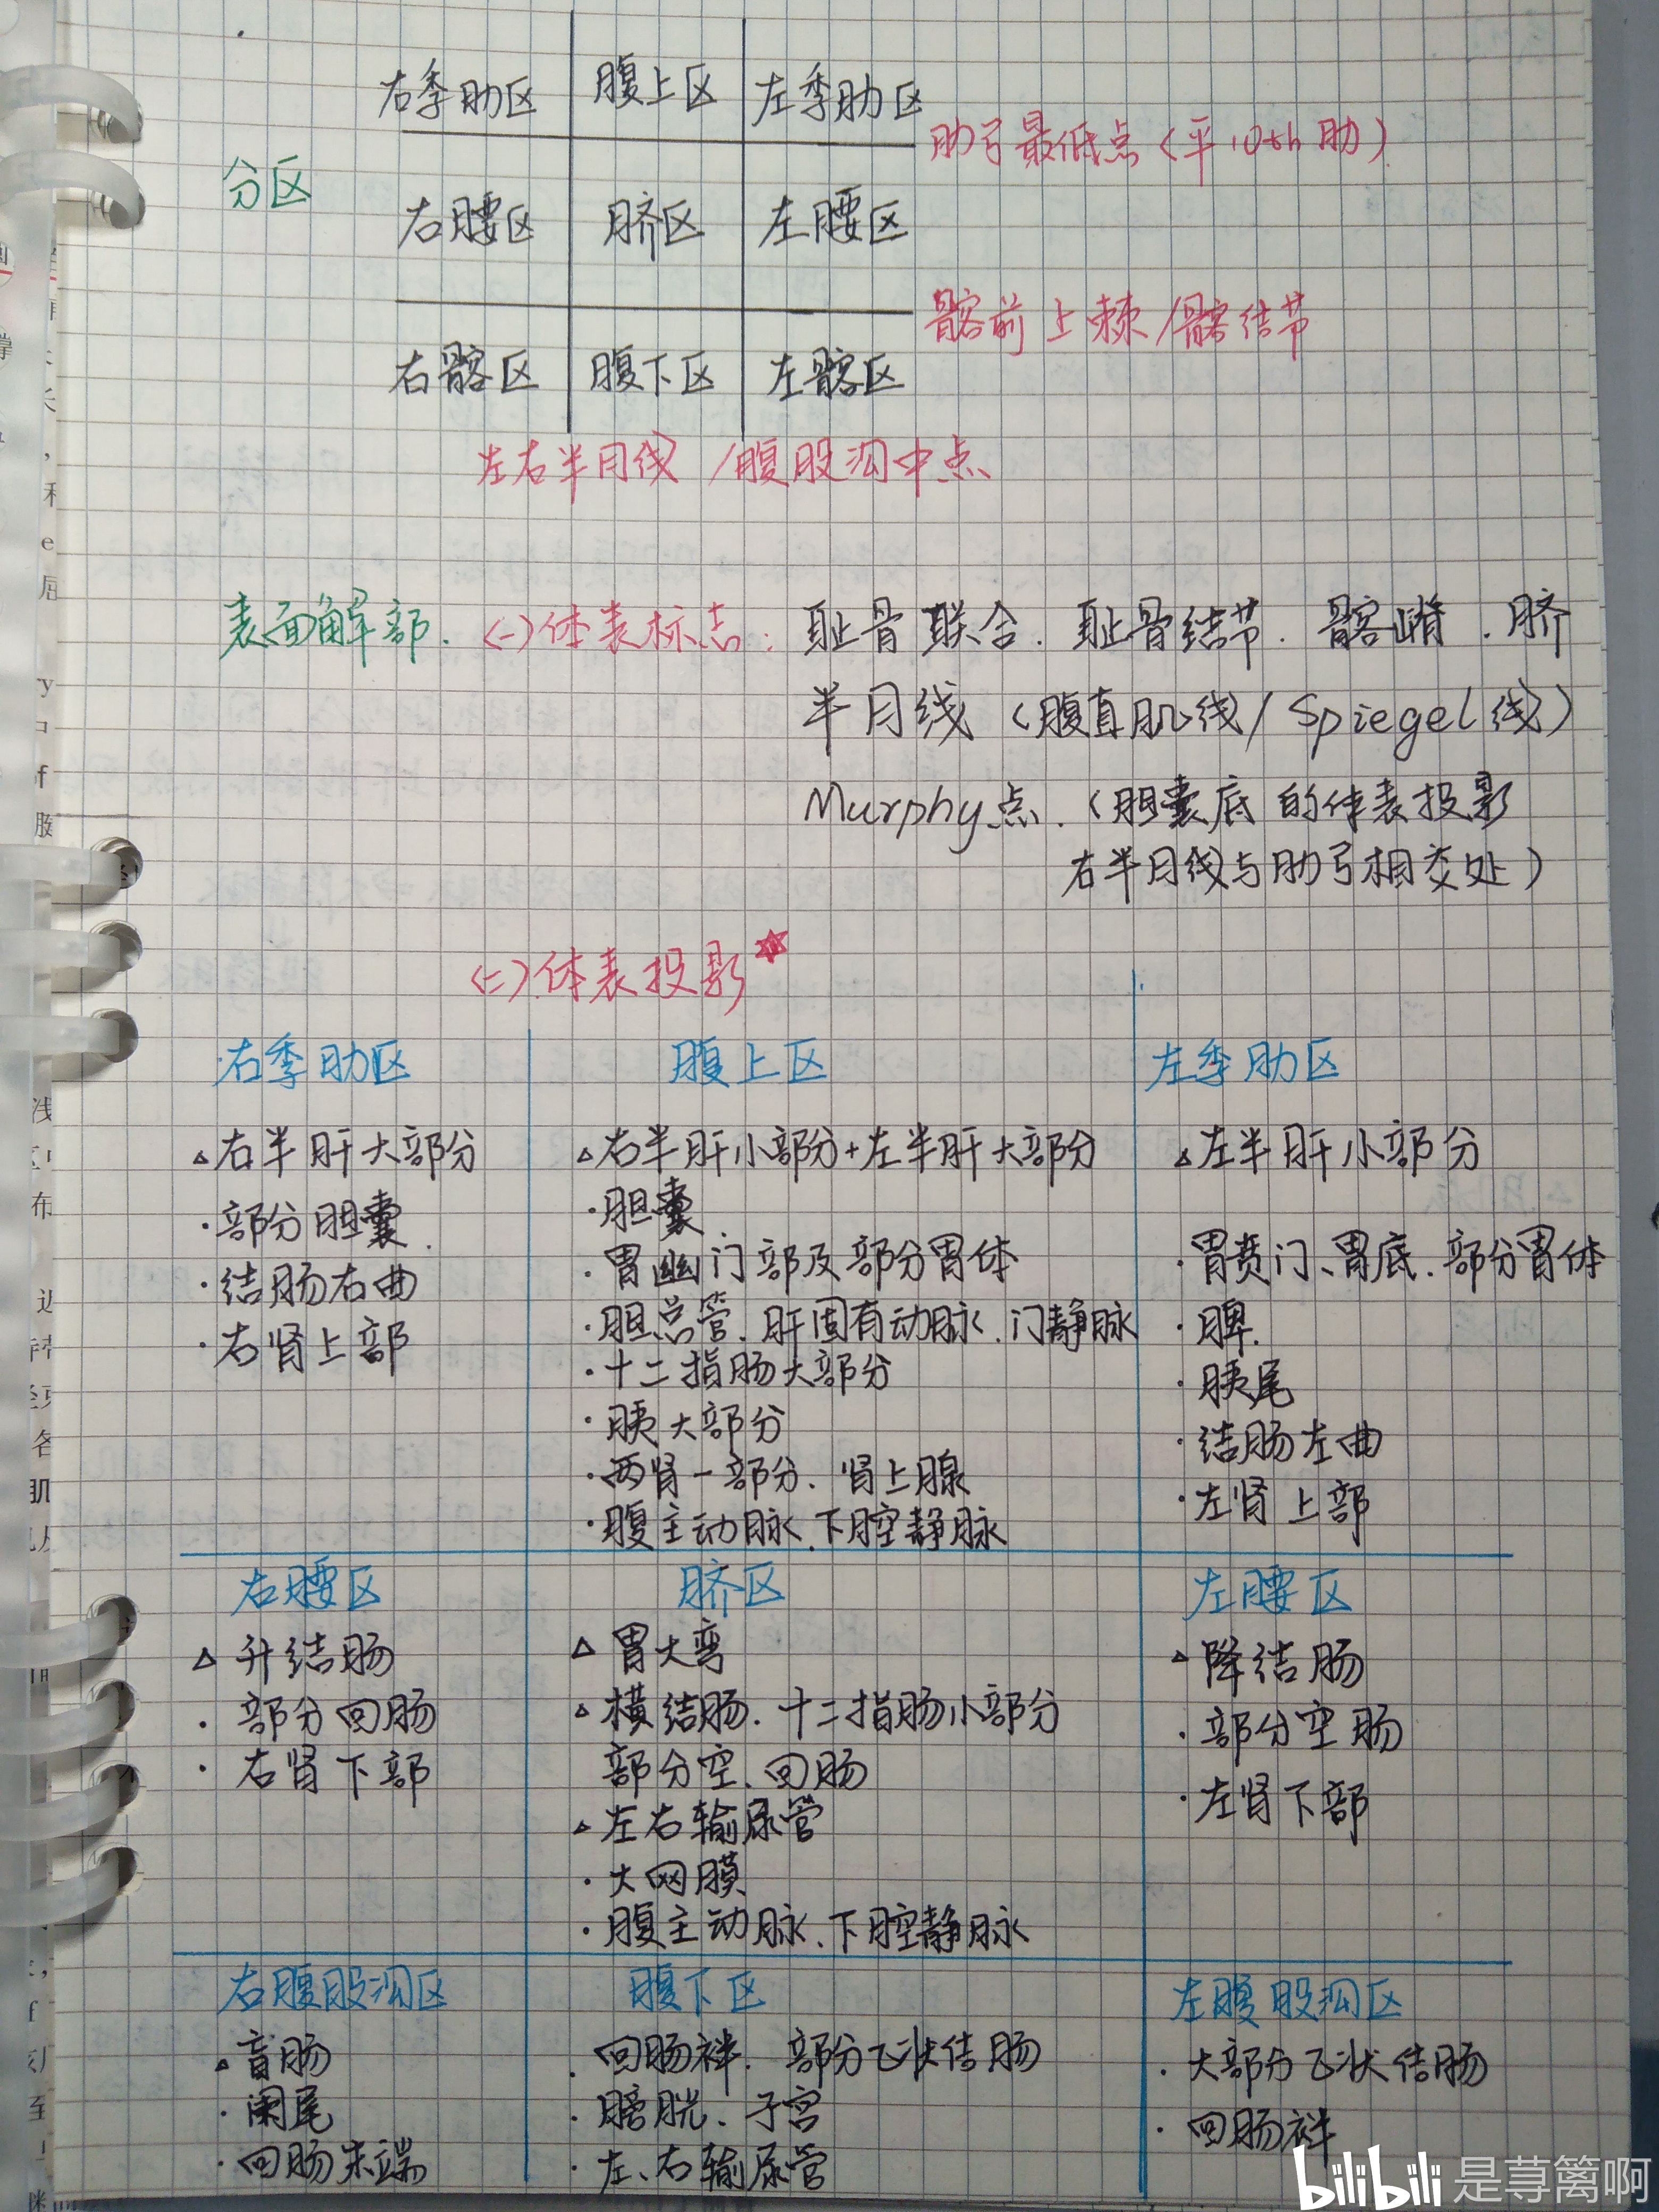 右季肋区 腹上区 左季肋区
肋弓最低点(平10th肋)
分区
右腰区 脐区 左腰区
髂前上棘/髂结节
右髂区 腹下区 左髂区
左右半月线/腹股沟中点
表面解部. (一)体表标志: 耻骨联合. 耻骨结节. 髂嵴. 脐
半月线(腹直肌线/Spiegel线)
Murphy点.(胆囊底的体表投影
右半月线与肋弓相交处)
(二)体表投影☆
右季肋区
△右半肝大部分
·部分胆囊.
·结肠右曲
·右肾上部
腹上区
△右半肝小部分+左半肝大部分
·胆囊.
·胃幽门部及部分胃体
·胆总管、肝固有动脉、门静脉
·十二指肠大部分
·胰大部分
·两肾一部分、肾上腺
·腹主动脉、下腔静脉
左季肋区
△左半肝小部分
·胃贲门、胃底、部分胃体
·脾.
·胰尾
·结肠左曲
·左肾上部
右腰区
△升结肠
·部分回肠
·右肾下部
脐区
△胃大弯
△横结肠、十二指肠小部分
部分空、回肠
△左右输尿管
·大网膜
·腹主动脉、下腔静脉
左腰区
△降结肠
·部分空肠
·左肾下部
右腹股沟区
△盲肠
·阑尾
·回肠末端
腹下区
·回肠袢、部分乙状结肠
·膀胱、子宫
·左、右输尿管
左腹股沟区
·大部分乙状结肠
·回肠袢
bilibili 是荨篱啊